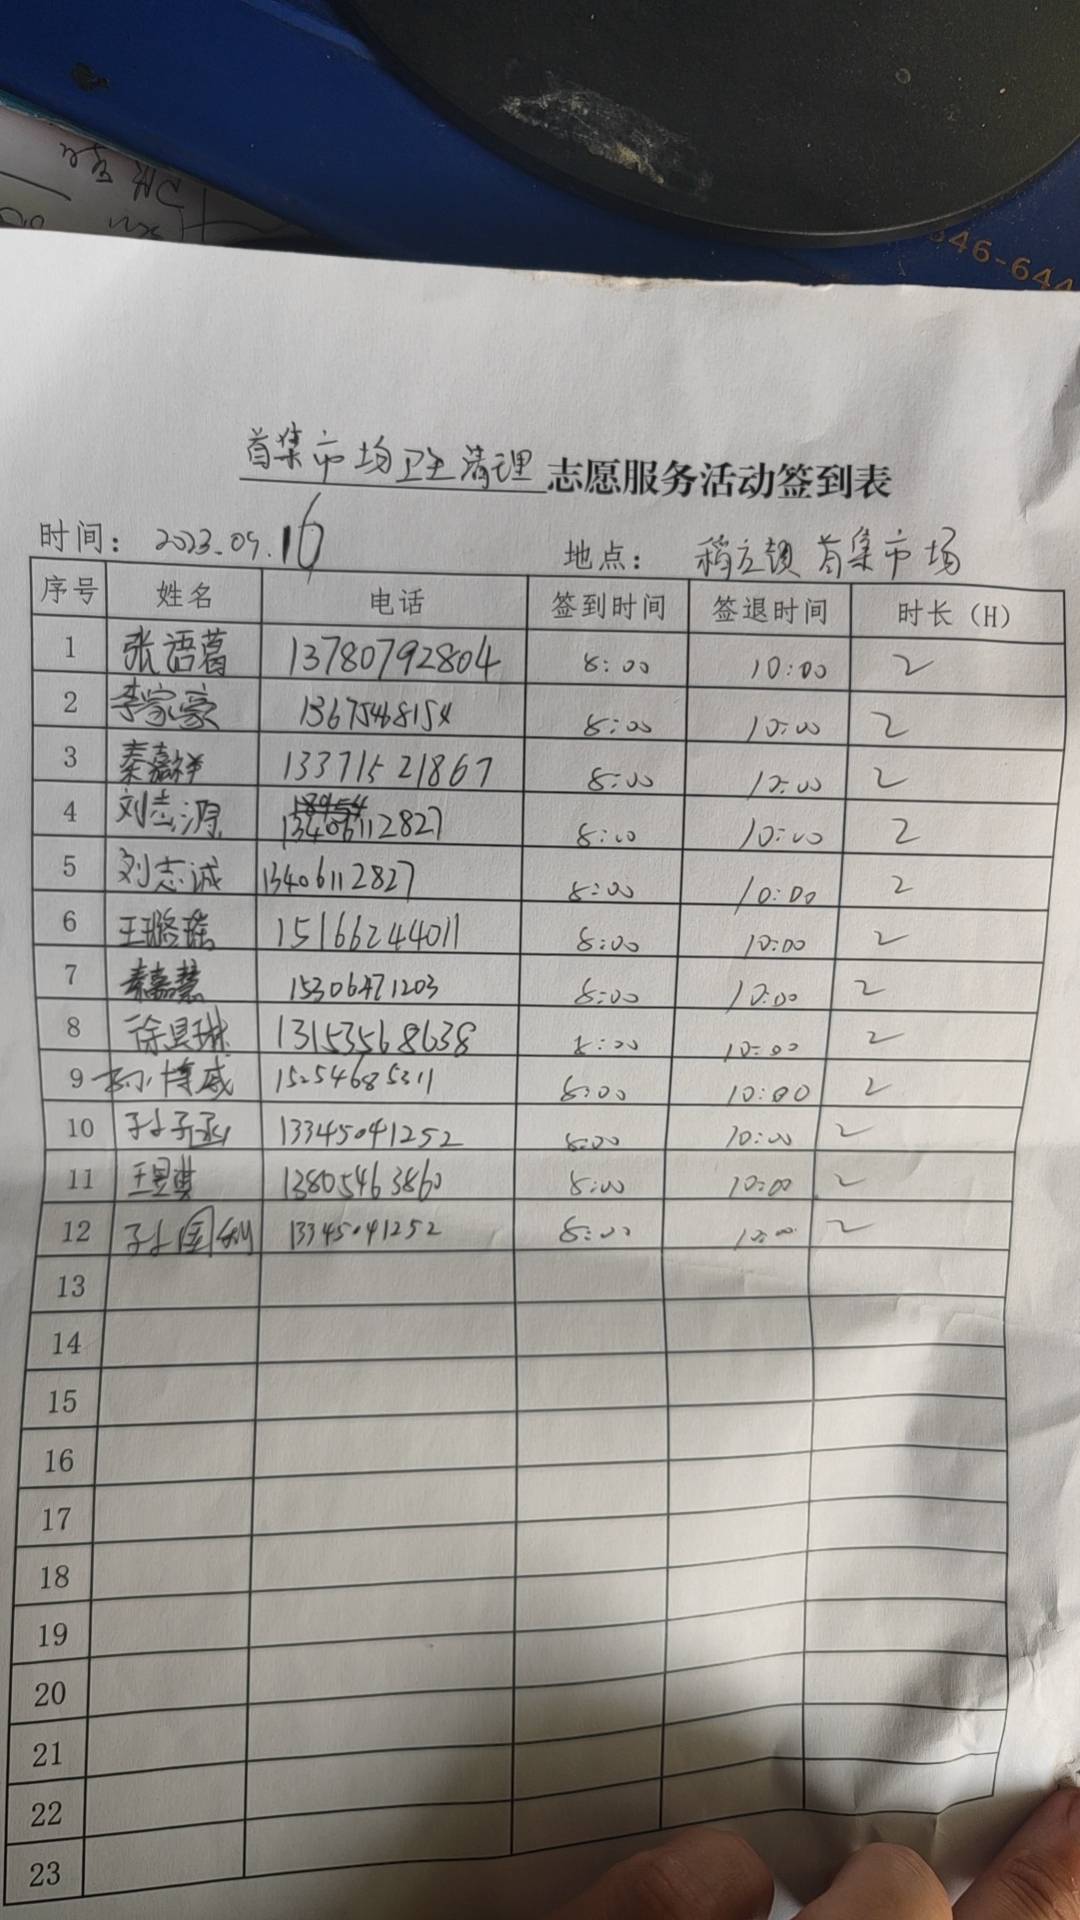 846-644
首集市场卫生清理志愿服务活动签到表
时间： 2023.09.16 地点： 稍庄镇首集市场
序号 姓名 电话 签到时间 签退时间 时长（H）
1 张语葛 13780792804 8:00 10:00 2
2 李家豪 13675468154 8:00 10:00 2
3 秦嘉祥 13371521867 8:00 10:00 2
4 刘志源 13406112827 8:00 10:00 2
5 刘志诚 13406112827 8:00 10:00 2
6 王璐瑶 15166244011 8:00 10:00 2
7 秦嘉慧 15306471203 8:00 10:00 2
8 徐县琳 13153568638 8:00 10:00 2
9 孙博威 15254685311 8:00 10:00 2
10 孙子函 13345041252 8:00 10:00 2
11 王昱淇 13805463860 8:00 10:00 2
12 孙国 13345041252 8:00 10:00 2
13
14
15
16
17
18
19
20
21
22
23